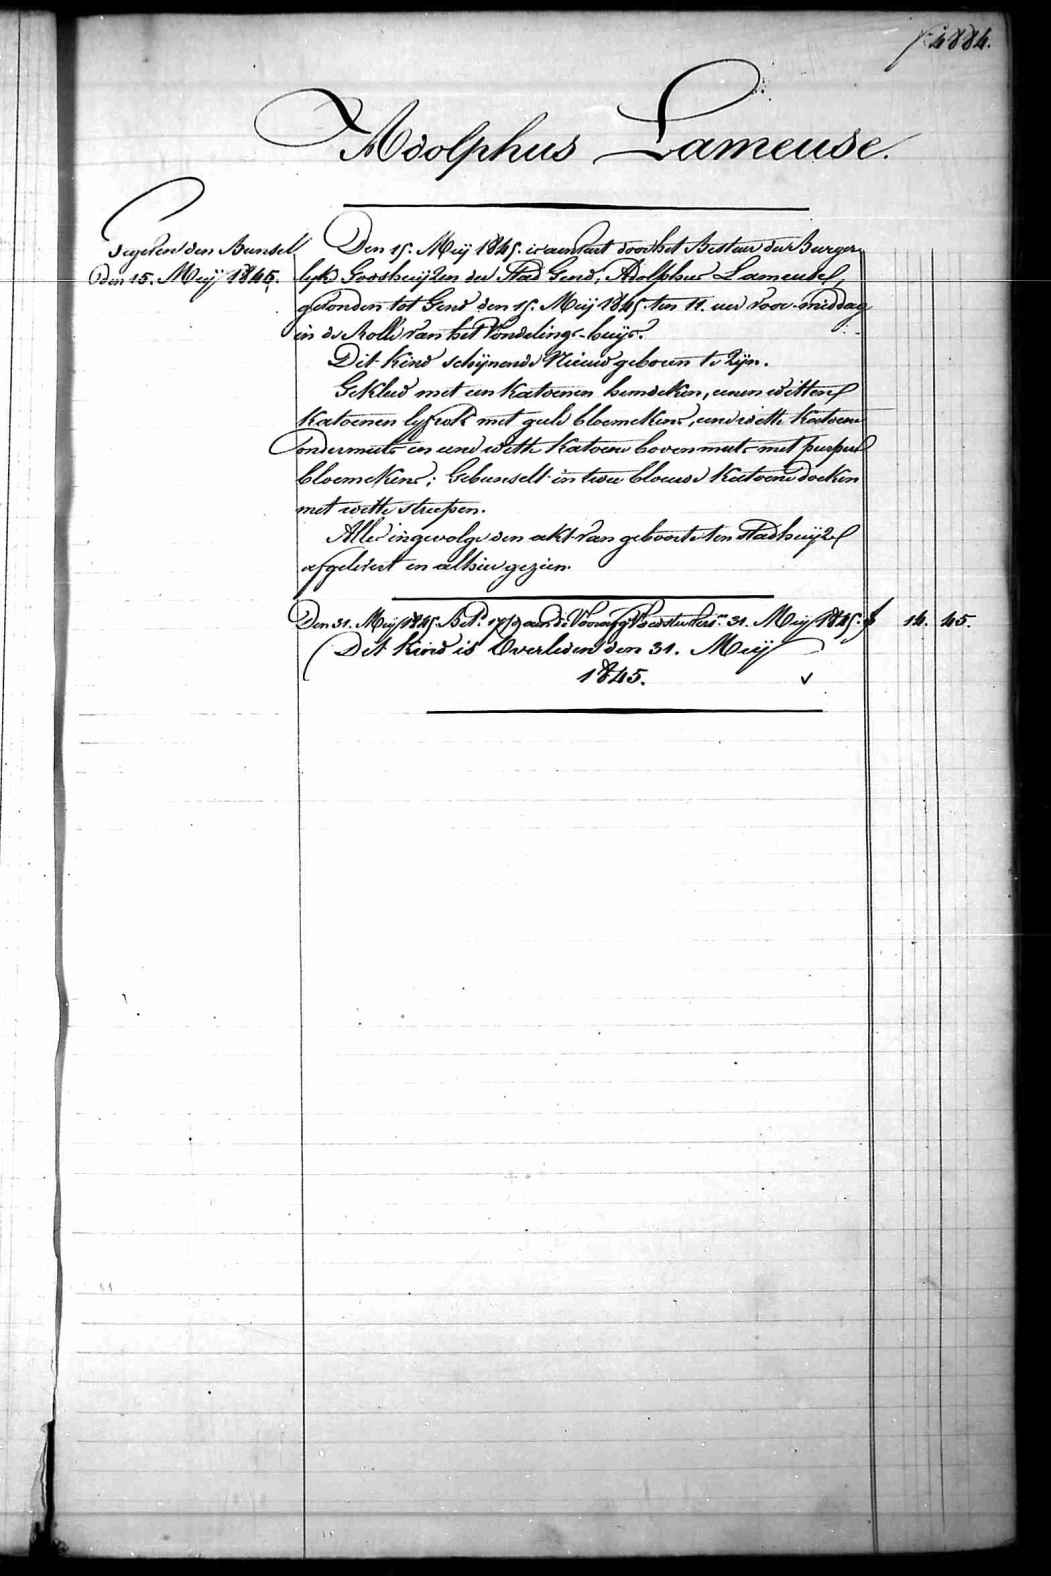 f. 4884.
Adolphus Lameuse.
Gegeven den Bunsell
den 15. Meij 1845.
Den 15. Meij 1845. is aenveert door het Bestuer der Burger-
lyke Godshuijzen der Stad Gend, Adolphus Lameuse,
gevonden tot Gend den 15. Meij 1845. ten 11. ure voor-middag
in de Rolle van het Vondelings-huijs.
Dit Kind schijnende Nieuw geboren te zijn.
Gekleed met een katoenen hemdeken, eenen witten
katoenen lyfrok met gele bloemekens, eene witte katoene
ondermuts en eene witte katoene bovenmuts met purpere
bloemekens; Gebunselt in twee blouwe katoene doeken
met witte streepen.
Alles ingevolge den akt van geboorte ten Stadhuijze
afgelevert en alhier gezien.
Den 31. Meij 1845. Bet. aan de 31. Meij 1845. f 14. 45.
Dit kind is Overleden den 31. Meij
1845.